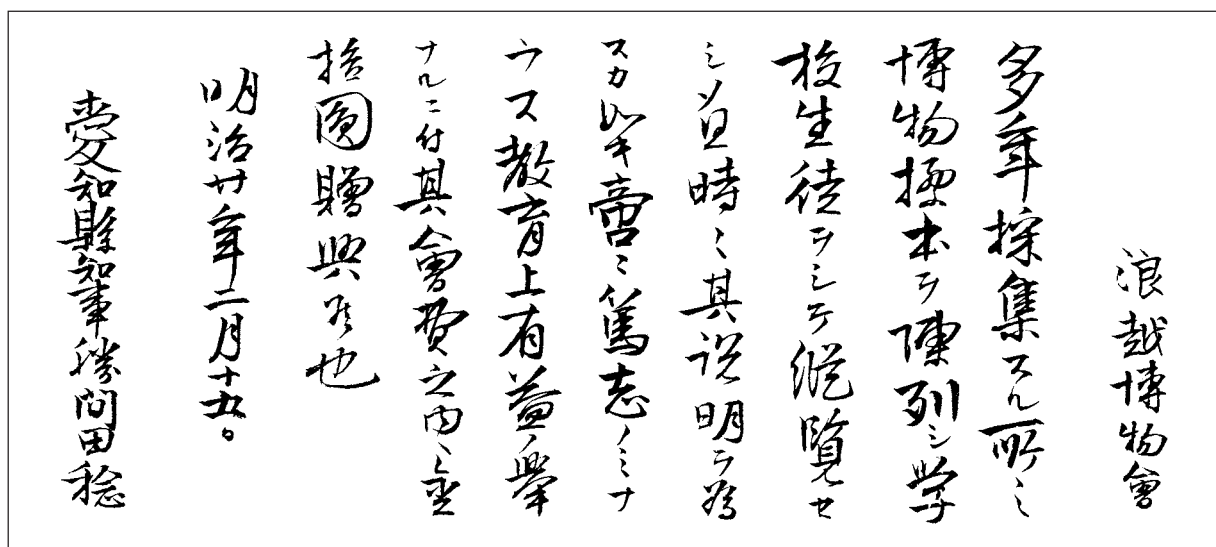 浪越博物會
多年採集スル所ノ
博物標本ヲ陳列シ学
校生徒ヲシテ縦覧セ
シメ且時々其説明ヲ為
スカ如キ啻ニ篤志ノミナ
ラス教育上有益ノ擧
ナルニ付其會費之内ヘ金
拾圓贈與候也
明治廿年二月十五日
愛知縣知事勝間田稔